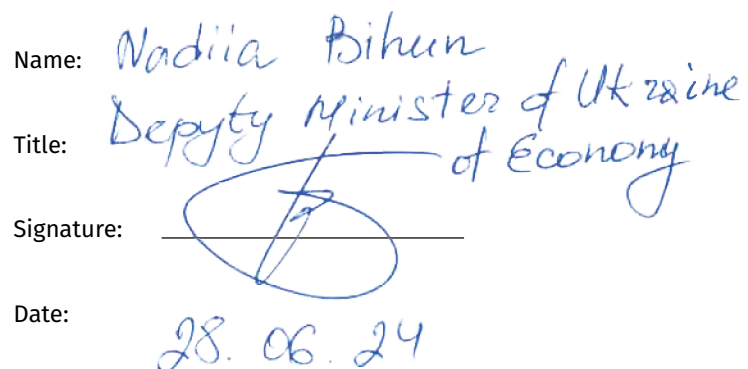 Name: Nadiia Bihun
Title: Depyty Minister of Ukraine
of Economy
Signature:
Date: 28.06.24